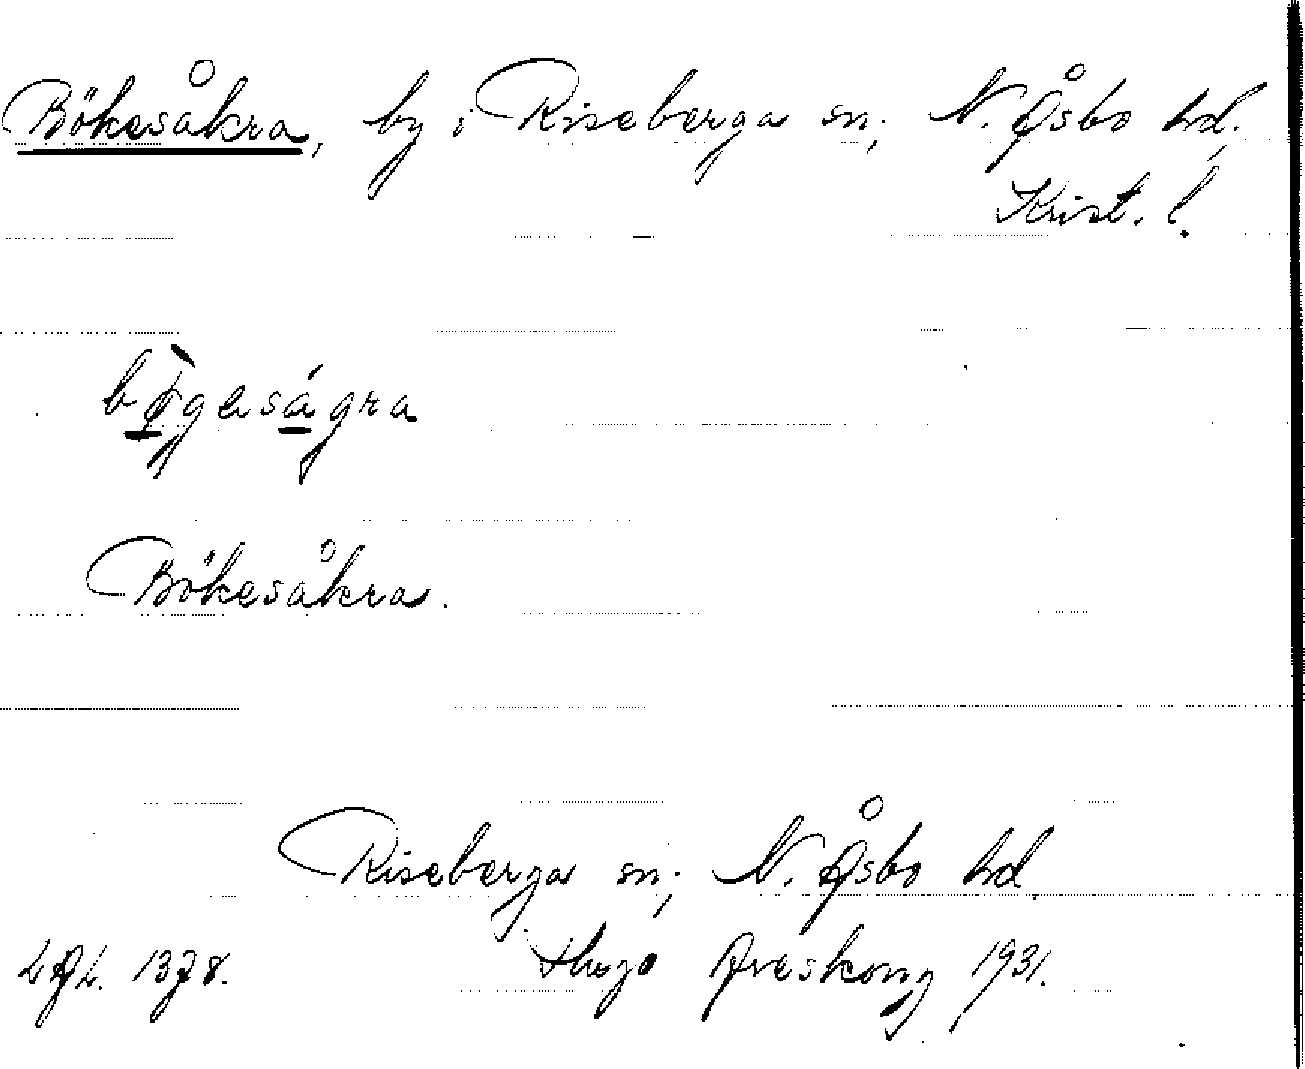 Bökesåkra, by i Riseberga sn; N. Åsbo hd,
Krist. l.
bø̀geságra
Bökesåkra.
Riseberga sn; N. Åsbo hd.
1378.
Hugo Areskoug 1931.